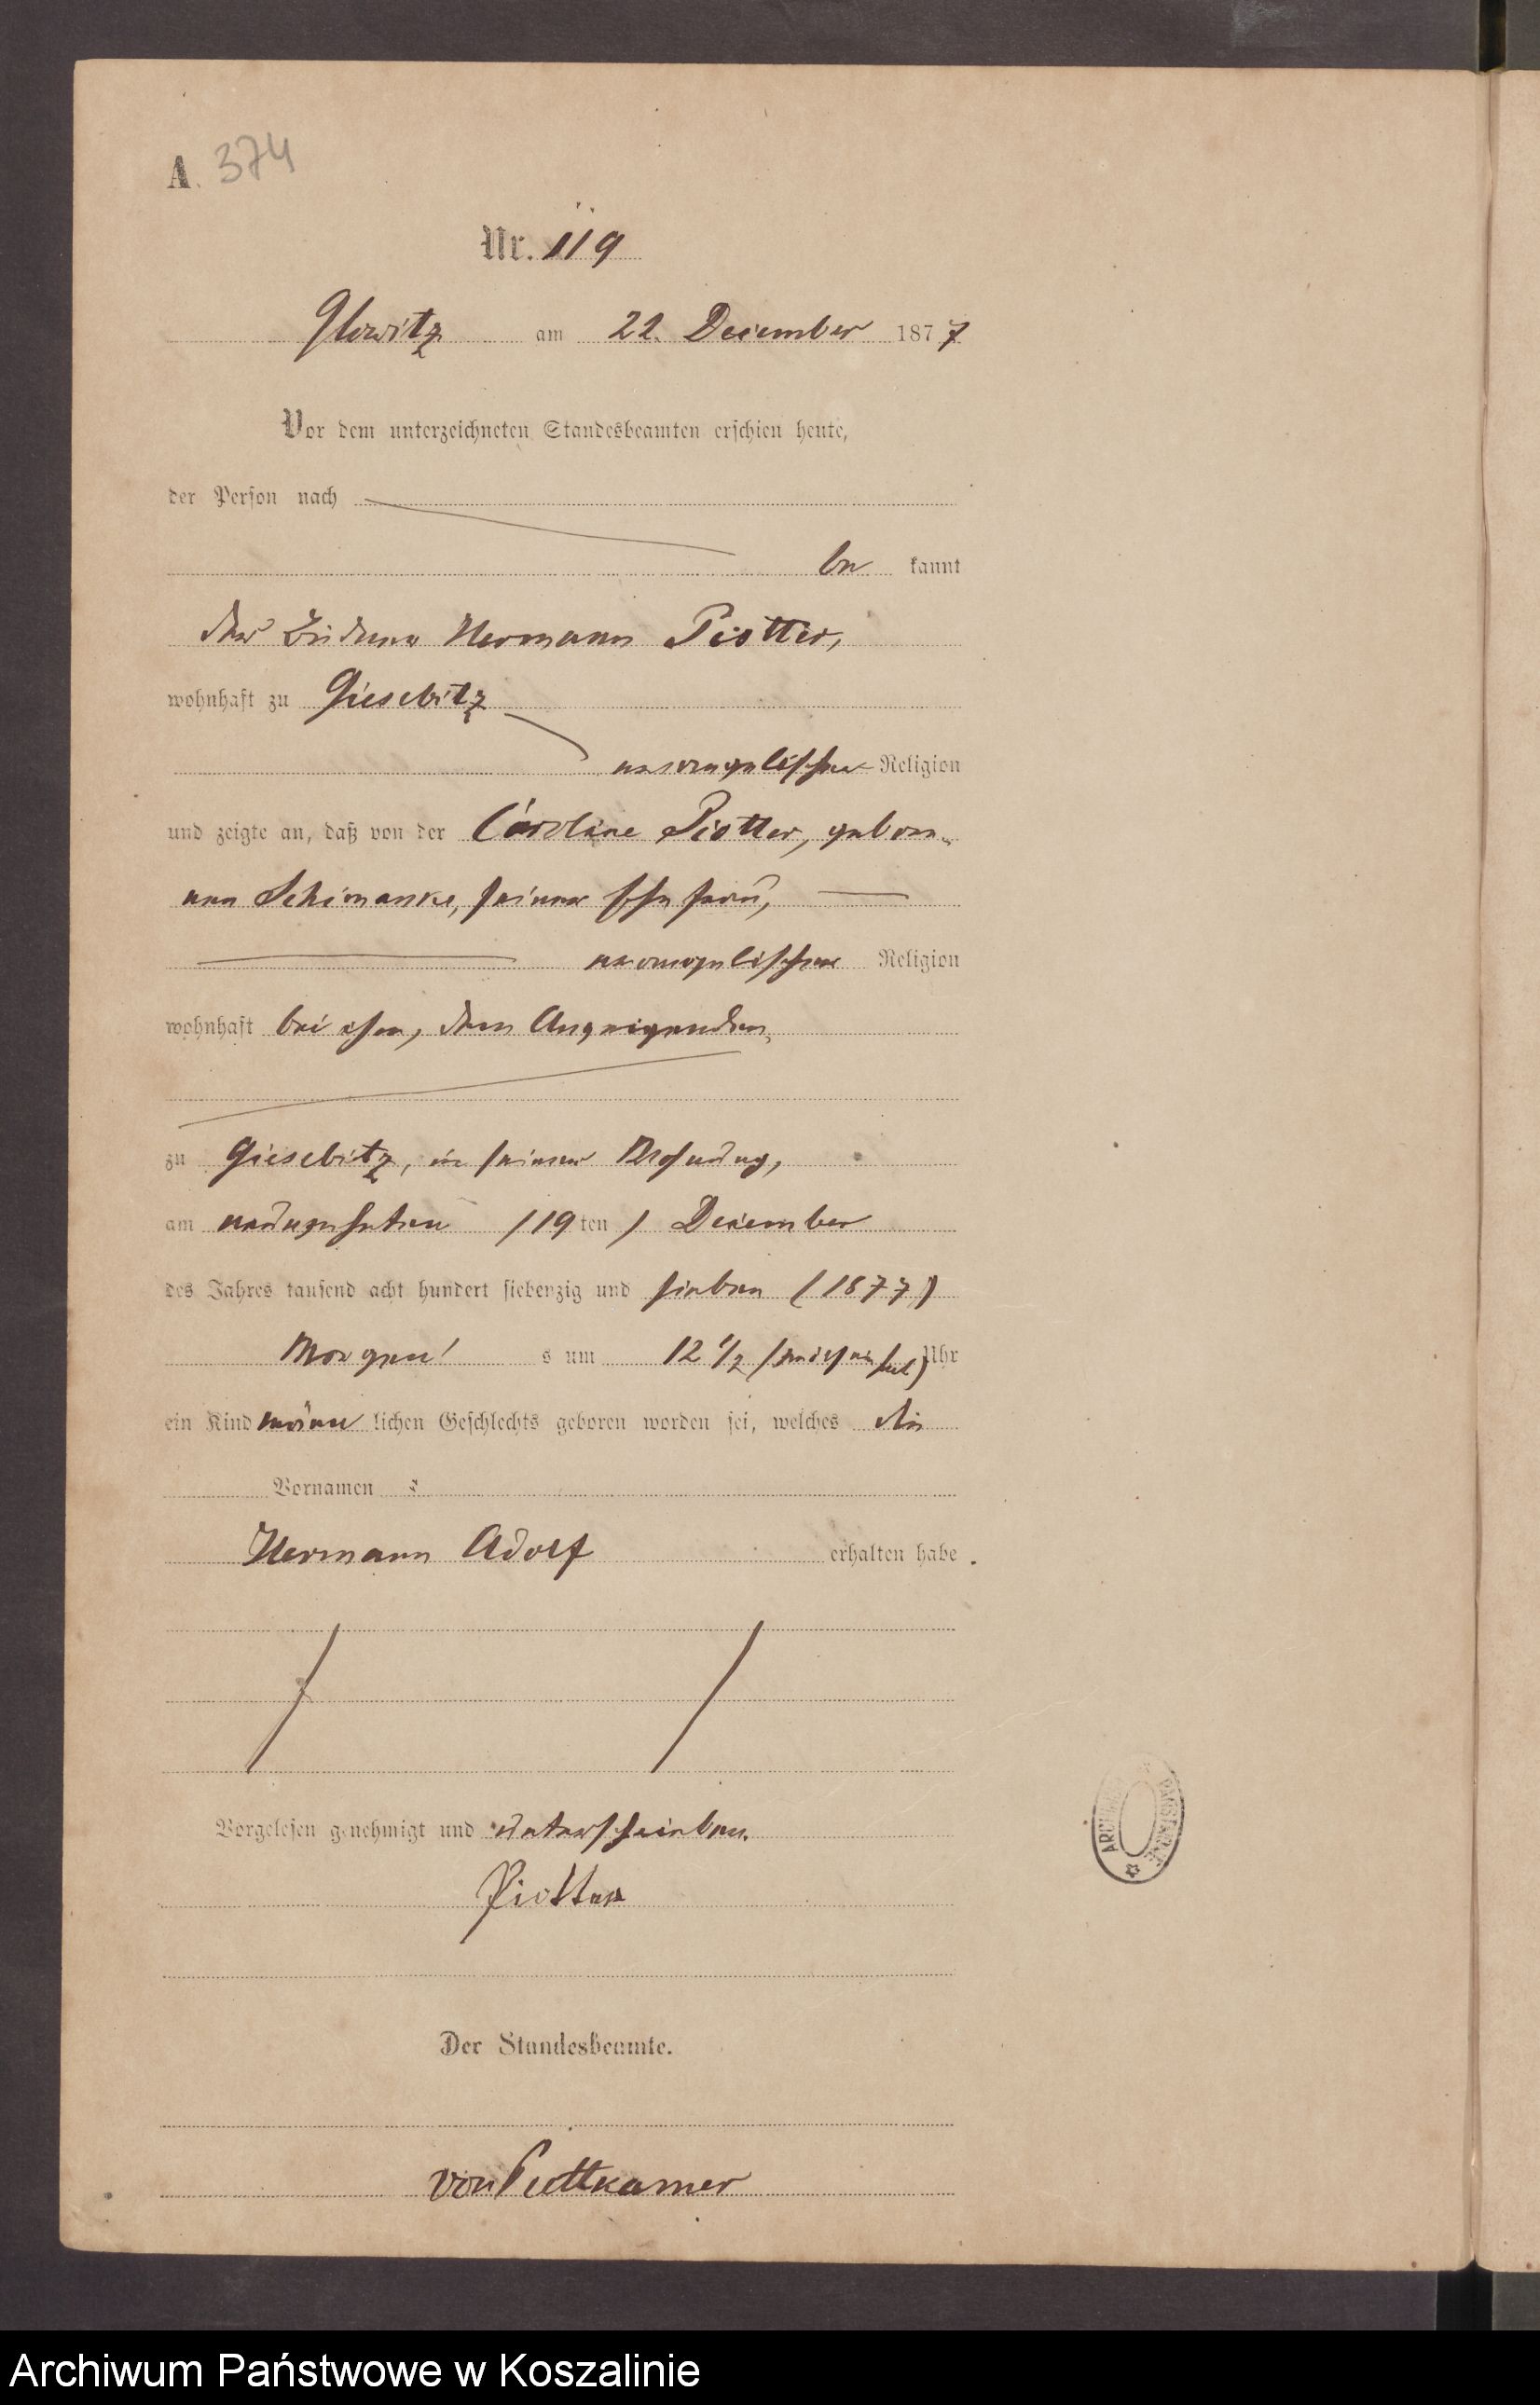 A. 374
Nr. 119
Glowitz am 22. December 1877
Vor dem unterzeichneten Standesbeamten erschien heute,
der Person nach
be kannt
der Büdner Hermann Piotter,
wohnhaft zu Giesebitz
evangelischer Religion
und zeigte an, daß von der Caroline Piotter, gebore-
nen Schimanke, seiner Ehefrau,
evangelischer Religion
wohnhaft bei ihm, dem Anzeigenden,
zu Giesebitz, in seiner Wohnung,
am neunzehnten /19ten/ December
des Jahres tausend acht hundert siebenzig und sieben (1877)
Morgen s um 12 1/2 Uhr
ein Kind männ lichen Geschlechts geboren worden sei, welches die
Vornamen
Hermann Adolf erhalten habe.
Vorgelesen genehmigt und unterschrieben.
Piotter
Der Standesbeamte.
von Puttkamer
Archiwum Państwowe w Koszalinie